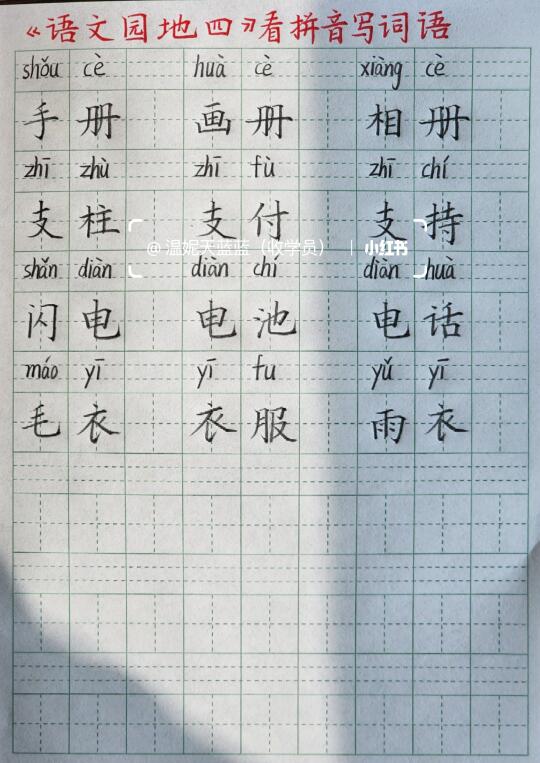 《语文园地四》看拼音写词语
shǒu cè huà cè xiàng cè
手册 画册 相册
zhī zhù zhī fù zhī chí
支柱 支付 支持
@温妮天蓝蓝（收学员） | 小红书
shǎn diàn diàn chí diàn huà
闪电 电池 电话
máo yī yī fu yǔ yī
毛衣 衣服 雨衣